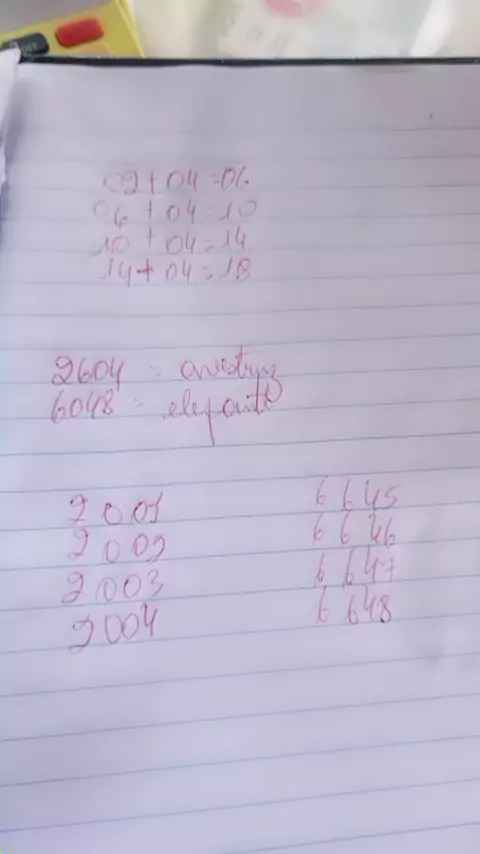 02+04=06
06+04=10
10+04=14
14+04=18
2604 = avestruz
6048 = elefante
2001
6645
2002
6646
2003
6647
2004
6648